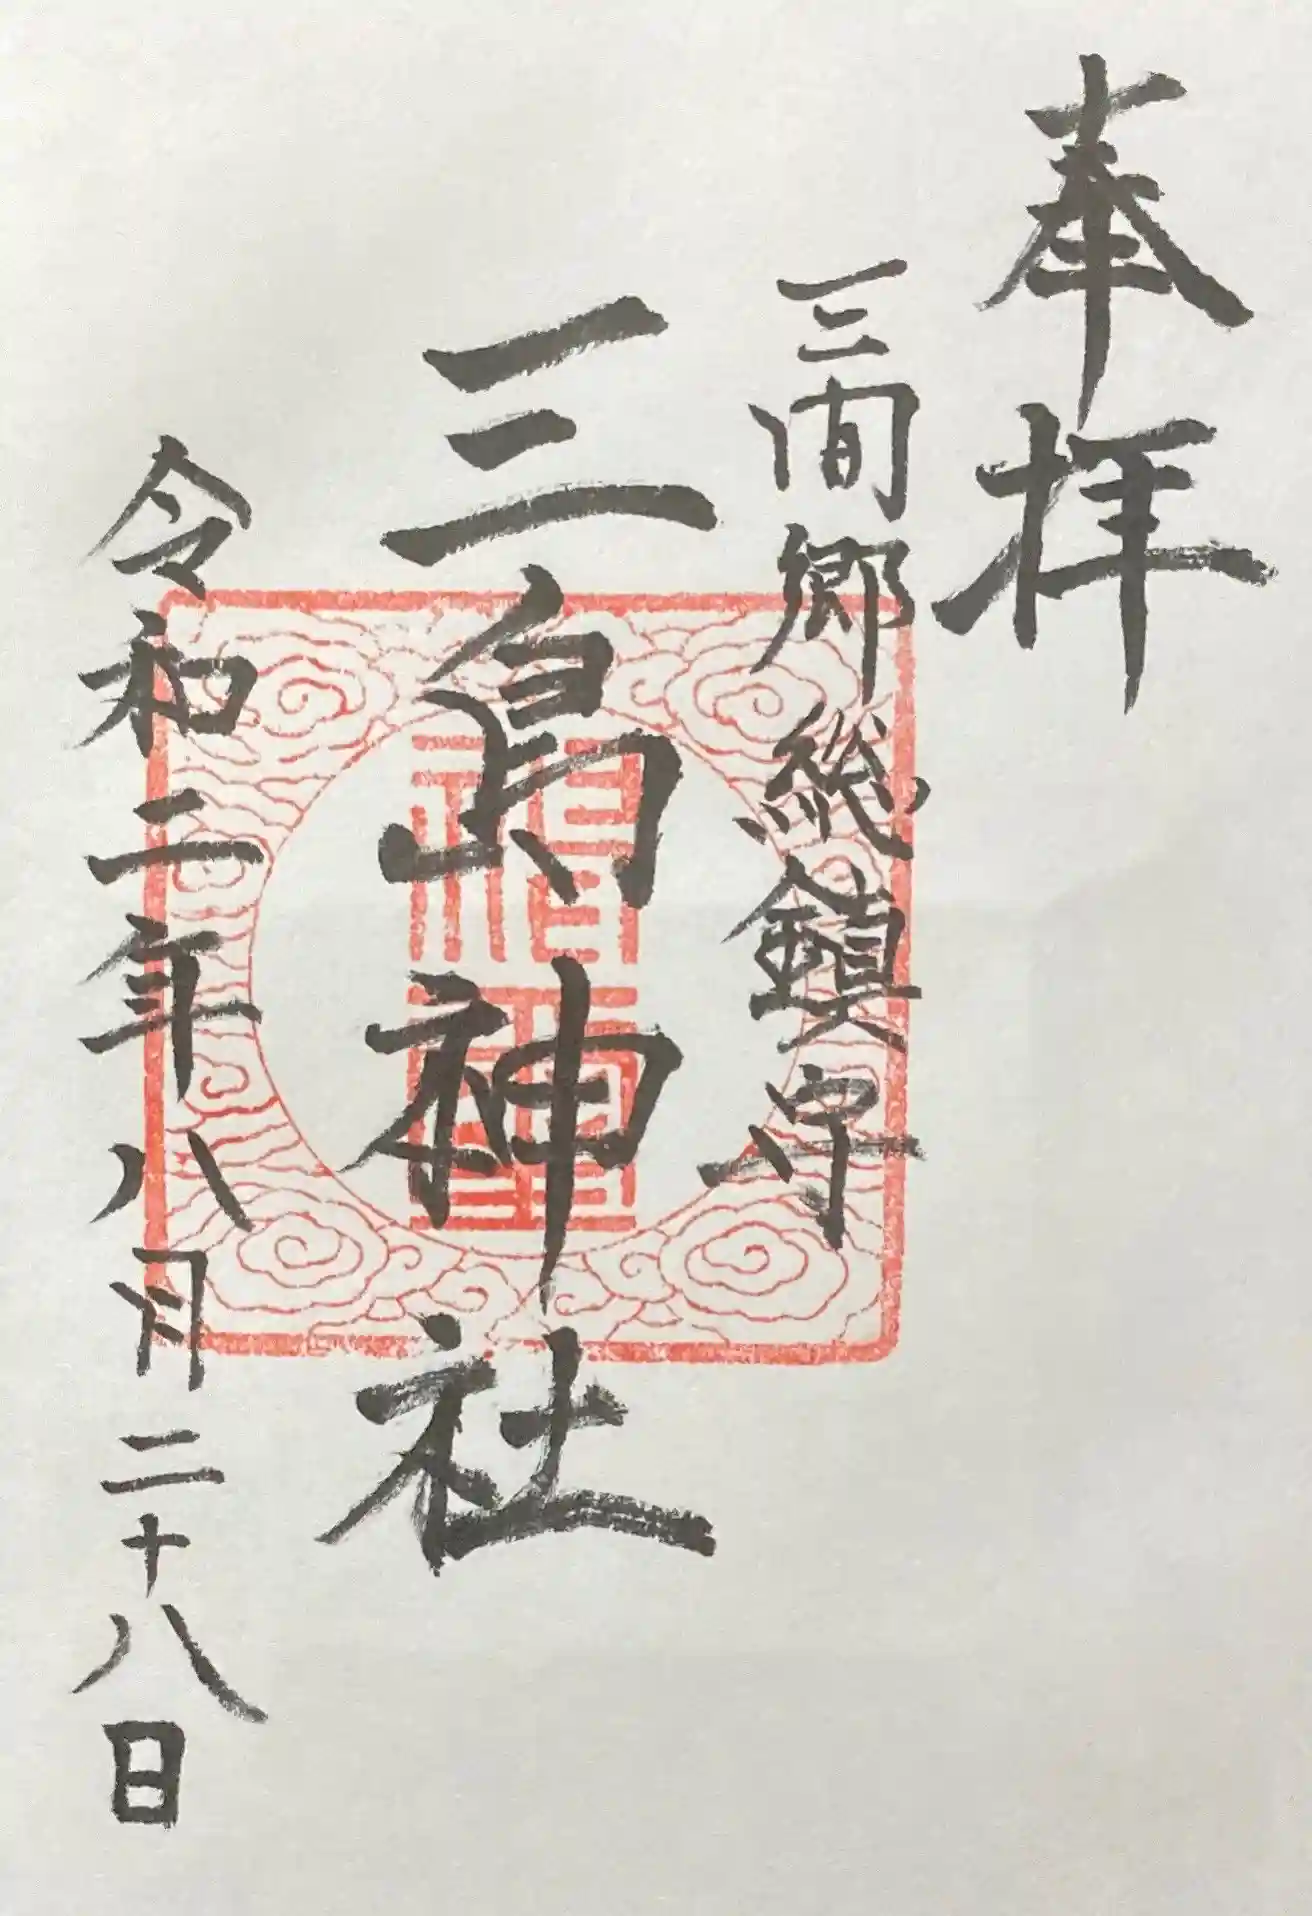 奉拝
三間郷総鎮守
三島神社
令和二年八月二十八日
福寶